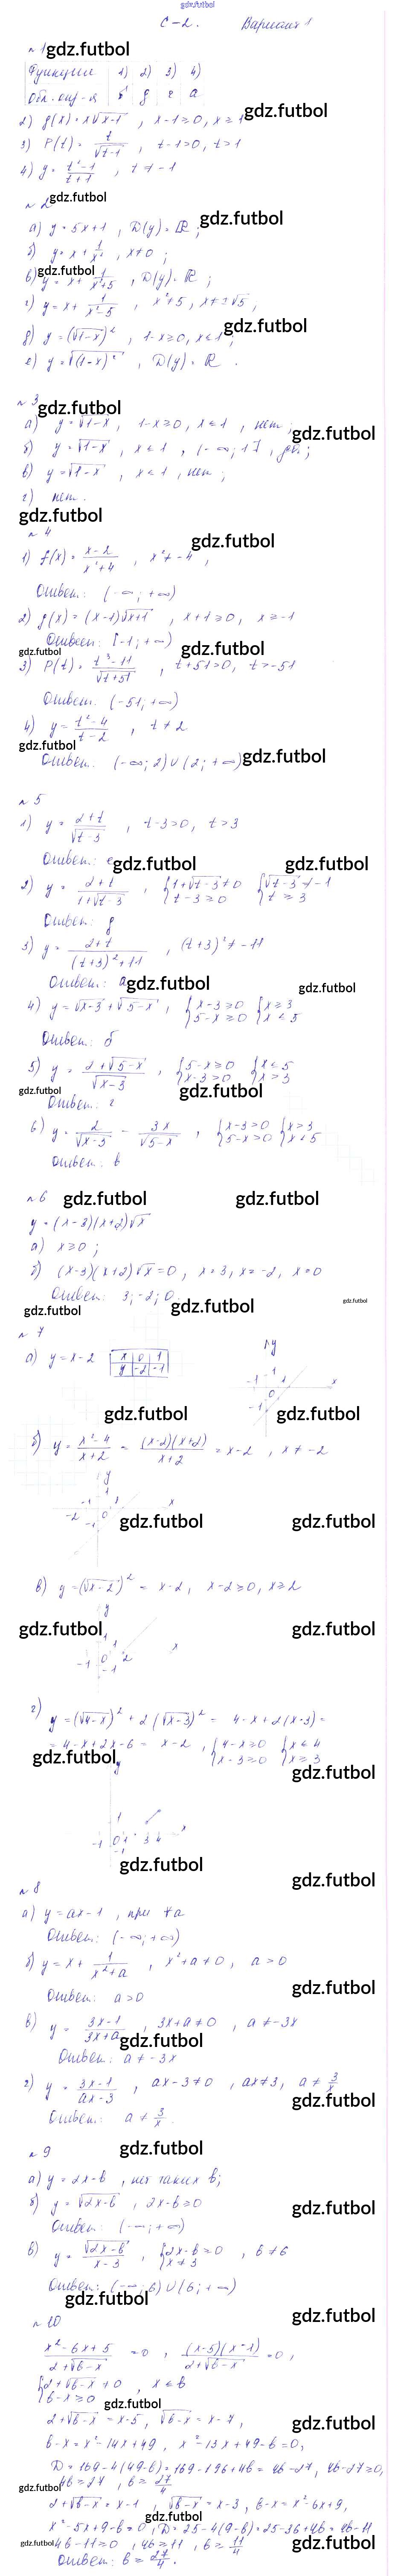 gdz.futbol
С-2. Вариант 1
№1 gdz.futbol
Функции 1) 2) 3) 4)
Обл. опр-я б д г а
2) g(x) = x√(x-1), x-1≥0, x≥1 gdz.futbol
3) P(t) = t/√(t-1), t-1>0, t>1
4) y = (t²-1)/(t+1), t≠-1
№2 gdz.futbol
а) y=5x+1, D(y)=ℝ; gdz.futbol
б) y=x+1/x², x≠0;
gdz.futbol
в) y=x+1/(x²+5), D(y)=ℝ;
г) y=x+1/(x²-5), x²≠5, x≠±√5;
д) y=(√(1-x))², 1-x≥0, x≤1; gdz.futbol
е) y=√((1-x)²), D(y)=ℝ.
№3 gdz.futbol
а) y=√(1-x), 1-x≥0, x≤1, нет; gdz.futbol
б) y=√(1-x), x≤1, (-∞;1], да;
в) y=√(1-x), x≤1, нет;
г) нет.
gdz.futbol
№4
1) f(x)=(x-2)/(x²+4), x²≠-4, gdz.futbol
Ответ: (-∞;+∞)
2) g(x)=(x-1)√(x+1), x+1≥0, x≥-1
Ответ: [-1;+∞)
gdz.futbol gdz.futbol
3) P(t)=(t³-11)/√(t+51), t+51>0, t>-51
Ответ: (-51;+∞)
4) y=(t²-4)/(t-2), t≠2
gdz.futbol
Ответ: (-∞;2)∪(2;+∞) gdz.futbol
№5
1) y=(2+t)/√(t-3), t-3>0, t>3
Ответ: е gdz.futbol gdz.futbol
2) y=(2+t)/(1+√(t-3)), {1+√(t-3)≠0 {√(t-3)≠-1
t-3≥0 t≥3
Ответ: д
3) y=(2+t)/((t+3)²+11), (t+3)²≠-11
Ответ: а gdz.futbol gdz.futbol
4) y=√(x-3)+√(5-x), {x-3≥0 {x≥3
5-x≥0 x≤5
Ответ: б
5) y=(2+√(5-x))/√(x-3), {5-x≥0 {x≤5
x-3>0 x>3
gdz.futbol gdz.futbol
Ответ: г
6) y=2/√(x-3) - 3x/√(5-x), {x-3>0 {x>3
5-x>0 x<5
Ответ: в
№6 gdz.futbol gdz.futbol
y=(x-3)(x+2)√x
а) x≥0;
б) (x-3)(x+2)√x=0, x=3, x=-2, x=0
Ответ: 3; -2; 0.
gdz.futbol gdz.futbol gdz.futbol
№7
а) y=x-2 x 0 1
y -2 -1
y
-1 1 1 x
0
-1
gdz.futbol gdz.futbol
б) y=(x²-4)/(x+2)=((x-2)(x+2))/(x+2)=x-2, x≠-2
y
-2 -1 0 1 x
-1
gdz.futbol gdz.futbol
в) y=(√(x-2))²=x-2, x-2≥0, x≥2
y
gdz.futbol gdz.futbol
-1 0 2 x
-1
г) y=(√(4-x))²+2(√(x-3))²=4-x+2(x-3)=
=4-x+2x-6=x-2, {4-x≥0 {x≤4
x-3≥0 x≥3
gdz.futbol y gdz.futbol
1
-1 0 1 3 4 x
-1
gdz.futbol gdz.futbol
№8
а) y=ax-1, при ∀a
Ответ: (-∞;+∞)
б) y=x+1/(x²+a), x²+a≠0, a>0
Ответ: a>0 gdz.futbol
в) y=(3x-1)/(3x+a), 3x+a≠0, a≠-3x
gdz.futbol
Ответ: a≠-3x
г) y=(3x-1)/(ax-3), ax-3≠0, ax≠3, a≠3/x
gdz.futbol
Ответ: a≠3/x.
№9 gdz.futbol
а) y=2x-b, нет таких b;
б) y=√(2x-b), 2x-b≥0 gdz.futbol
Ответ: (-∞;+∞)
в) y=√(2x-b)/(x-3), {2x-b≥0, b≠6
x≠3
Ответ: (-∞;6)∪(6;+∞)
gdz.futbol
№10 gdz.futbol
(x²-6x+5)/(2+√(b-x))=0, ((x-5)(x-1))/(2+√(b-x))=0,
{2+√(b-x)≠0, x≤b
b-x≥0
gdz.futbol
2+√(b-x)=x-5, √(b-x)=x-7, gdz.futbol
b-x=x²-14x+49, x²-13x+49-b=0,
D=169-4(49-b)=169-196+4b=4b-27, 4b-27≥0,
gdz.futbol
4b≥27, b≥27/4
2+√(b-x)=x-1, √(b-x)=x-3, b-x=x²-6x+9,
gdz.futbol
x²-5x+9-b=0, D=25-4(9-b)=25-36+4b=4b-11
gdz.futbol 4b-11≥0, 4b≥11, b≥11/4 gdz.futbol
Ответ: b≥27/4.